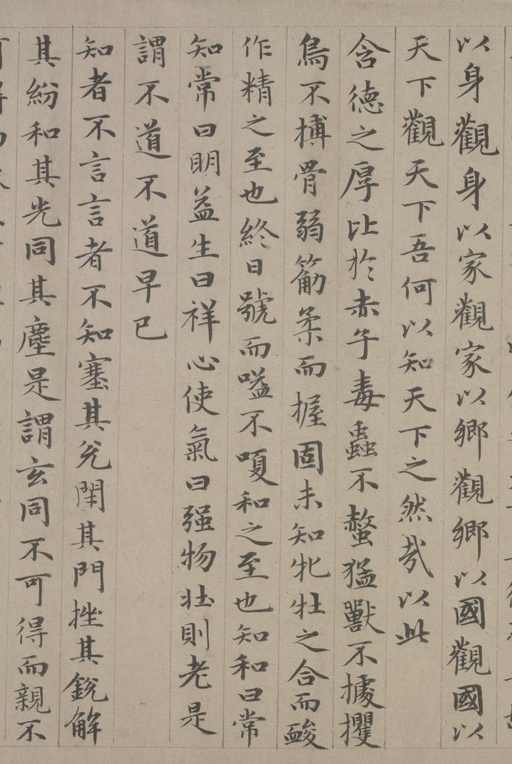 以身觀身以家觀家以鄉觀鄉以國觀國以
天下觀天下吾何以知天下之然㢤以此
含德之厚比於赤子毒蟲不螫猛獸不據攫
鳥不搏骨弱筋柔而握固未知牝牡之合而䘒
作精之至也終日號而嗌不嗄和之至也知和曰常
知常曰明益生曰祥心使氣曰强物壯則老是
謂不道不道早已
知者不言言者不知塞其兊閉其門挫其銳解
其紛和其光同其塵是謂玄同不可得而親不